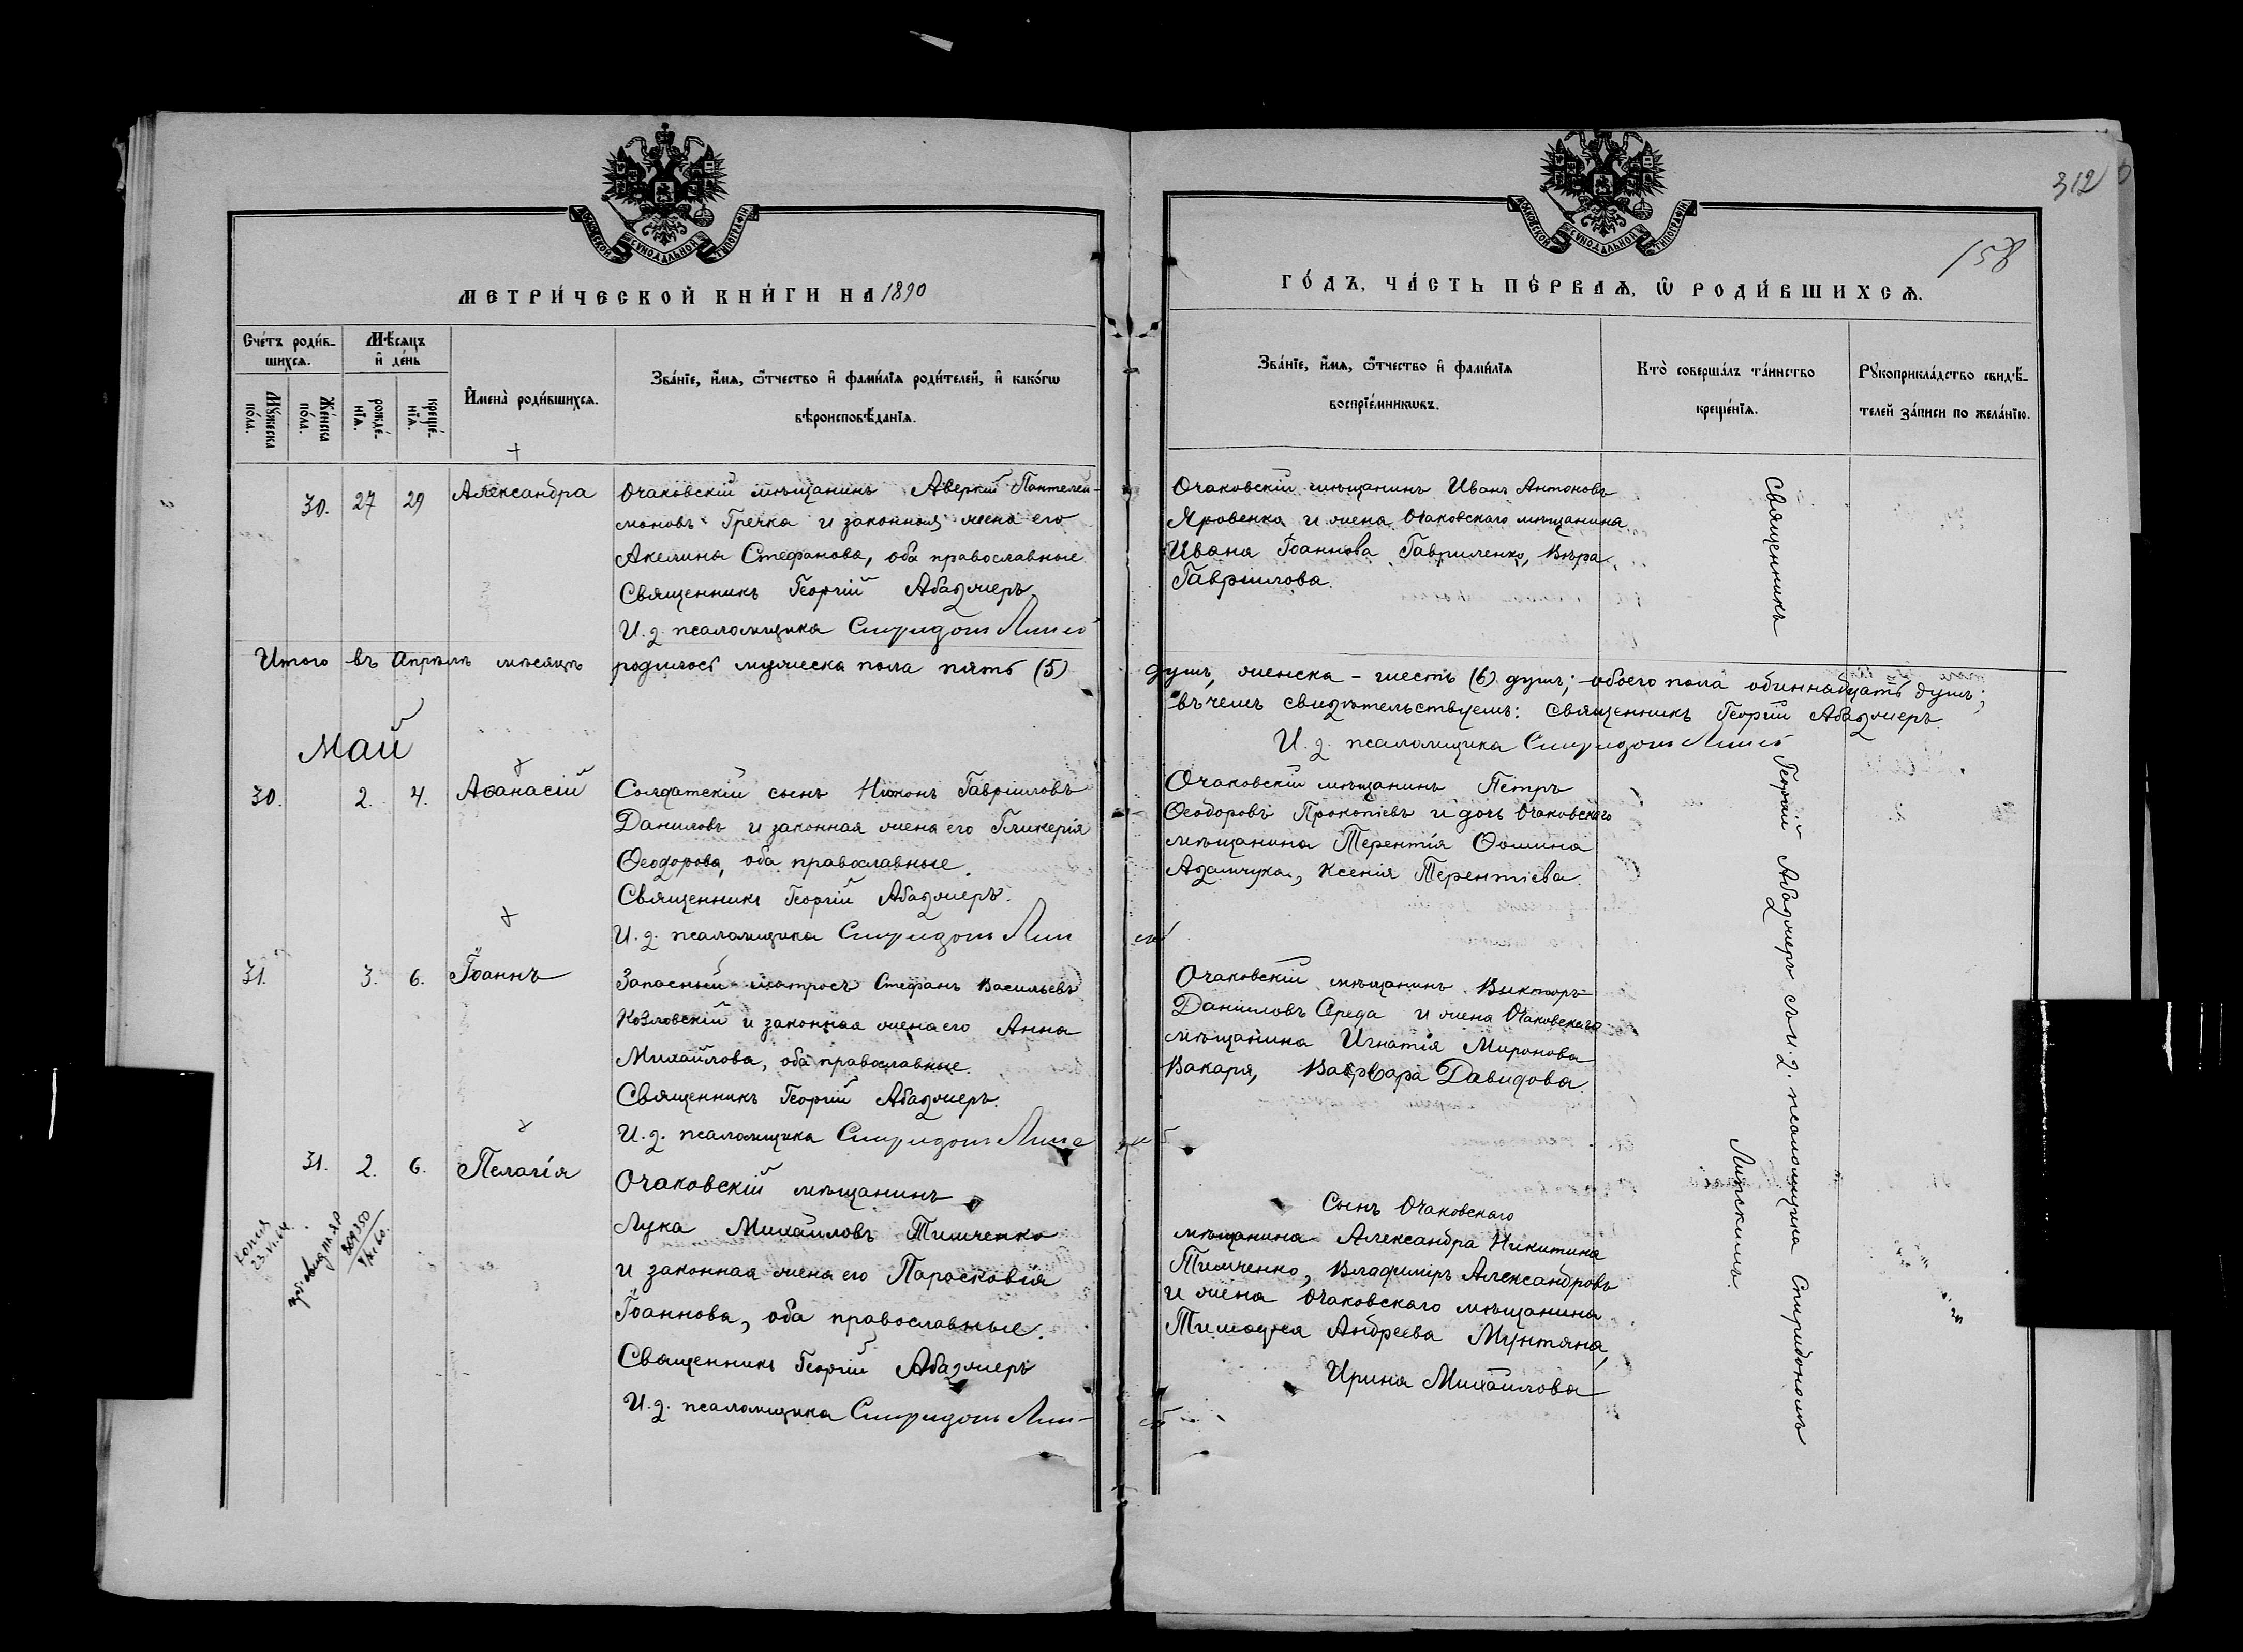 312
158
МОСКОВСКОЙ СѴНОДАЛЬНОЙ ТИПОГРАФІИ
МОСКОВСКОЙ СѴНОДАЛЬНОЙ ТИПОГРАФІИ
МЕТРИ́ЧЕСКОЙ КНИ́ГИ НА 1890
ГО́ДЪ, ЧА́СТЬ ПЕ́РВАѦ, Ѽ РОДИ́ВШИХСѦ.
Сче́тъ роди́в-
шихсѧ.
Мѣ́сѧцъ
и҆ де́нь
Мꙋ́жеска
по́ла.
Же́нска
по́ла.
рожде́-
нїѧ.
креще́-
нїѧ.
И҆мена̀ роди́вшихсѧ.
Зва́нїе, и҆́мѧ, ѻ҆́тчество и҆ фами́лїѧ роди́телей, и҆ како́гѡ
вѣроисповѣ́данїѧ.
Зва́нїе, и҆́мѧ, ѻ҆́тчество и҆ фами́лїѧ
воспрїе́мникѡвъ.
Кто̀ соверша́лъ та́инство
креще́нїѧ.
Рꙋкоприкла́дство свидѣ́-
телей за́писи по жела́нїю.
30. 27 29 Александра
Очаковскій мѣщанинъ Аверкій Пантелей-
моновъ Гречка и законная жена его
Акелина Стефанова, оба православные
Священникъ Георгій Абаджеръ
И. д. псаломщика Спиридонъ
Очаковскій мѣщанинъ Иванъ Антоновъ
Яровенко и жена Очаковскаго мѣщанина
Ивана Іоаннова Гавриленко, Вѣра
Гавріилова.
Итого въ Апрѣлѣ мѣсяцѣ родилось мужеска пола пять (5) душъ, женска - шесть (6) душъ; обоего пола одиннадцать душъ;
въ чемъ свидѣтельствуемъ: Священникъ Георгій Абаджеръ
И. д. псаломщика Спиридонъ
Май
30. 2. 4. Аѳанасій
Солдатскій сынъ Никонъ Гавріиловъ
Даниловъ и законная жена его Гликерія
Ѳеодорова, оба православные.
Священникъ Георгій Абаджеръ.
И. д. псаломщика Спиридонъ
Очаковскій мѣщанинъ Петръ
Ѳеодоровъ Прокопіевъ и дочь Очаковскаго
мѣщанина Терентія Ѳомина
Адамчука, Ксенія Терентіева.
31. 3. 6. Іоаннъ
Запасный матросъ Стефанъ Васильевъ
Козловскій и законная жена его Анна
Михайлова, оба православные.
Священникъ Георгій Абаджеръ.
И. д. псаломщика Спиридонъ
Очаковскій мѣщанинъ Викторъ
Даниловъ Середа и жена Очаковскаго
мѣщанина Игнатія Миронова
Вакаря, Варвара Давидова
31. 2. 6. Пелагія
Очаковскій мѣщанинъ
Лука Михайловъ Тимченко
и законная жена его Парасковія
Іоаннова, оба православные.
Священникъ Георгій Абаджеръ
И. д. псаломщика Спиридонъ
Сынъ Очаковскаго
мѣщанина Александра Никитина
Тимченко, Владиміръ Александровъ
и жена Очаковскаго мѣщанина
Тимоѳея Андреева Мунтяна,
Ирина Михайлова
копия
23.VI.64
Священникъ Георгій Абаджеръ съ и. д. псаломщика Спиридономъ
Липскимъ.